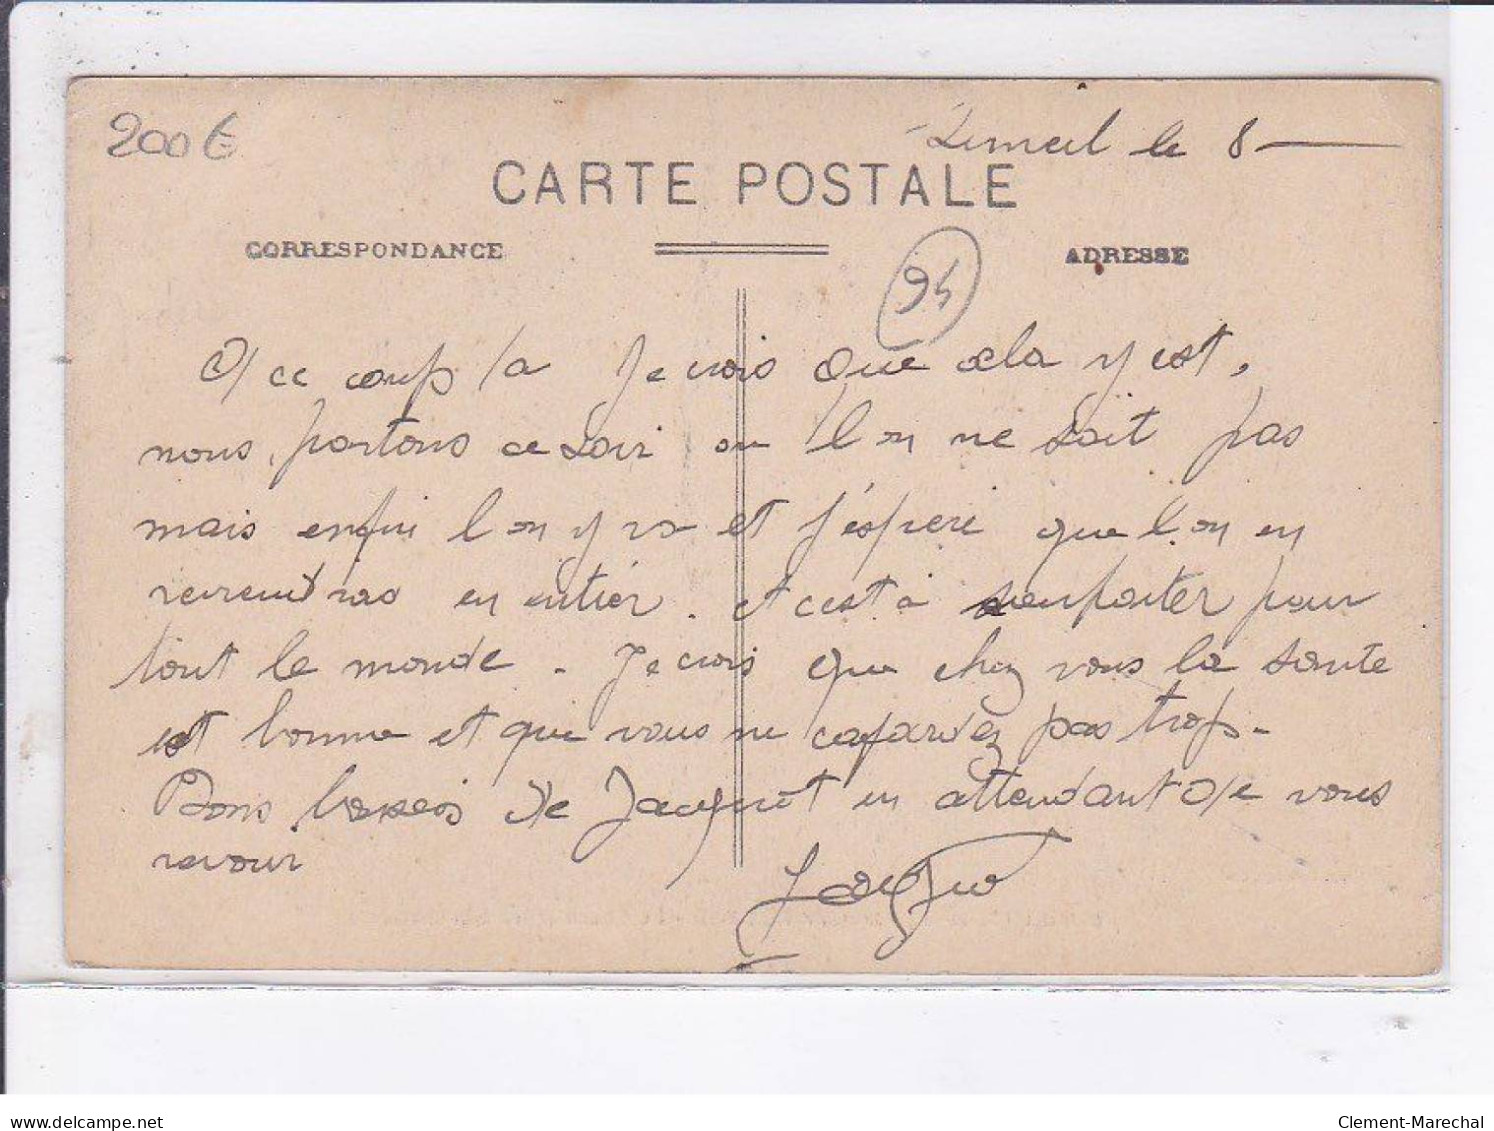 200€
Limeil le 8
CARTE POSTALE
CORRESPONDANCE
ADRESSE
94
A ce coup la Je crois que cela y est,
nous partons ce soir ou l'on ne sait pas
mais enfin l on y va et j'espere que l'on en
reviendras en entier. et c'est à souhaiter pour
tout le monde - Je crois que chez vous la sante
est bonne et que vous ne cafardez pas trop -
Bons baisers de Jacquot en attendant de vous
revoir
delcampe.net
Clement-Marechal